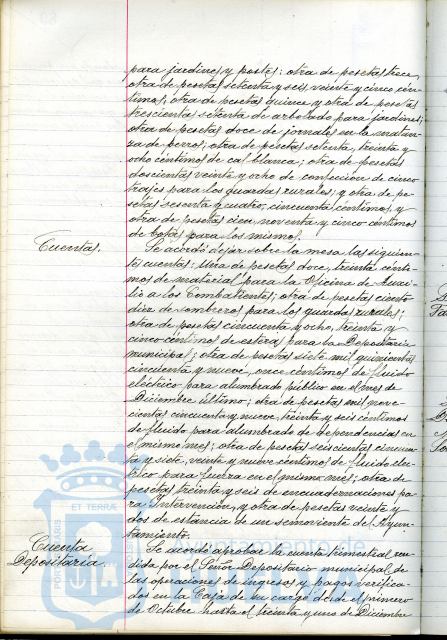 para jardines y postes; otra de pesetas trece,
otra de pesetas setenta y seis, veinte y cinco cén-
timos; otra de pesetas quince y otra de pesetas
trescientas setenta de arbolado para jardines;
otra de pesetas doce de jornales en la matan-
za de perros; otra de pesetas setenta, treinta y
ocho céntimos de cal blanca; otra de pesetas
doscientas veinte y ocho de confección de cinco
trajes para los guardas rurales; y otra de pe-
setas sesenta y cuatro, cincuenta céntimos, y
otra de pesetas cien noventa y cinco céntimos
de botas para los mismos.
Cuentas. Se acordó dejar sobre la mesa las siguien-
tes cuentas: Una de pesetas doce, treinta cénti-
mos de material para la Oficina de Auxi-
lio a los Combatientes; otra de pesetas ciento
diez de sombreros para los guardas rurales;
otra de pesetas cincuenta y ocho, treinta y
cinco céntimos de esteras para la Depositaría
municipal; otra de pesetas siete mil quinientas
cincuenta y nueve, once céntimos de fluido
eléctrico para alumbrado público en el mes de
Diciembre último; otra de pesetas mil nove-
cientas cincuenta y nueve, treinta y seis céntimos
de fluido para alumbrado de dependencias en
el mismo mes; otra de pesetas seiscientas cincuen-
ta y siete, veinte y nueve céntimos de fluido eléc-
trico para fuerza en el mismo mes; otra de
pesetas treinta y seis de encuadernaciones pa-
ra Intervención, y otra de pesetas veinte y
dos de estancia de un semoviente del Ayun-
tamiento.
Cuenta
Depositaría. Se acordó aprobar la cuenta trimestral ren-
dida por el Señor Depositario municipal de
las operaciones de ingresos y pagos verifica-
dos en la Caja de su cargo desde el primero
de Octubre hasta el treinta y uno de Diciembre
ET TERRÆ
Ayuntamiento de